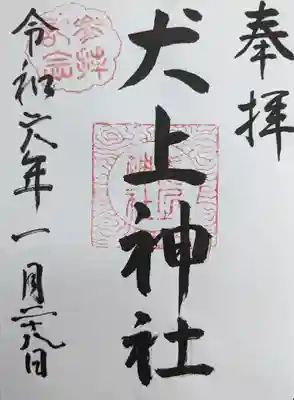 奉拝
犬上神社
令和六年一月二十八日
参拝記念